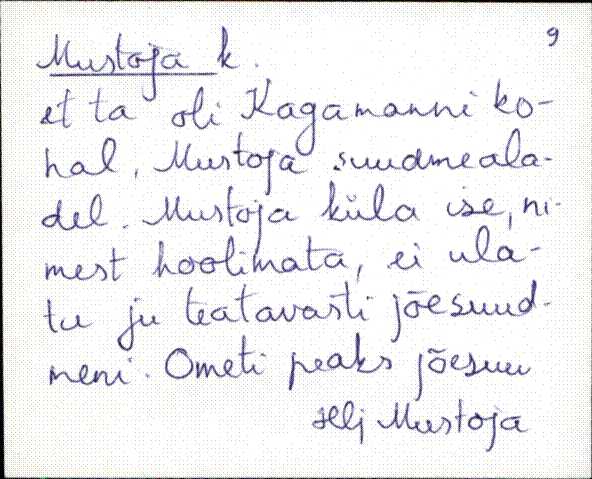 9
Mustoja k.
et ta oli Kagamanni ko-
hal, Mustoja suudmeala-
del. Mustoja küla ise, ni-
mest hoolimata, ei ula-
tu ju teatavasti jõesuud-
meni. Ometi peaks jõesuu
Mustoja